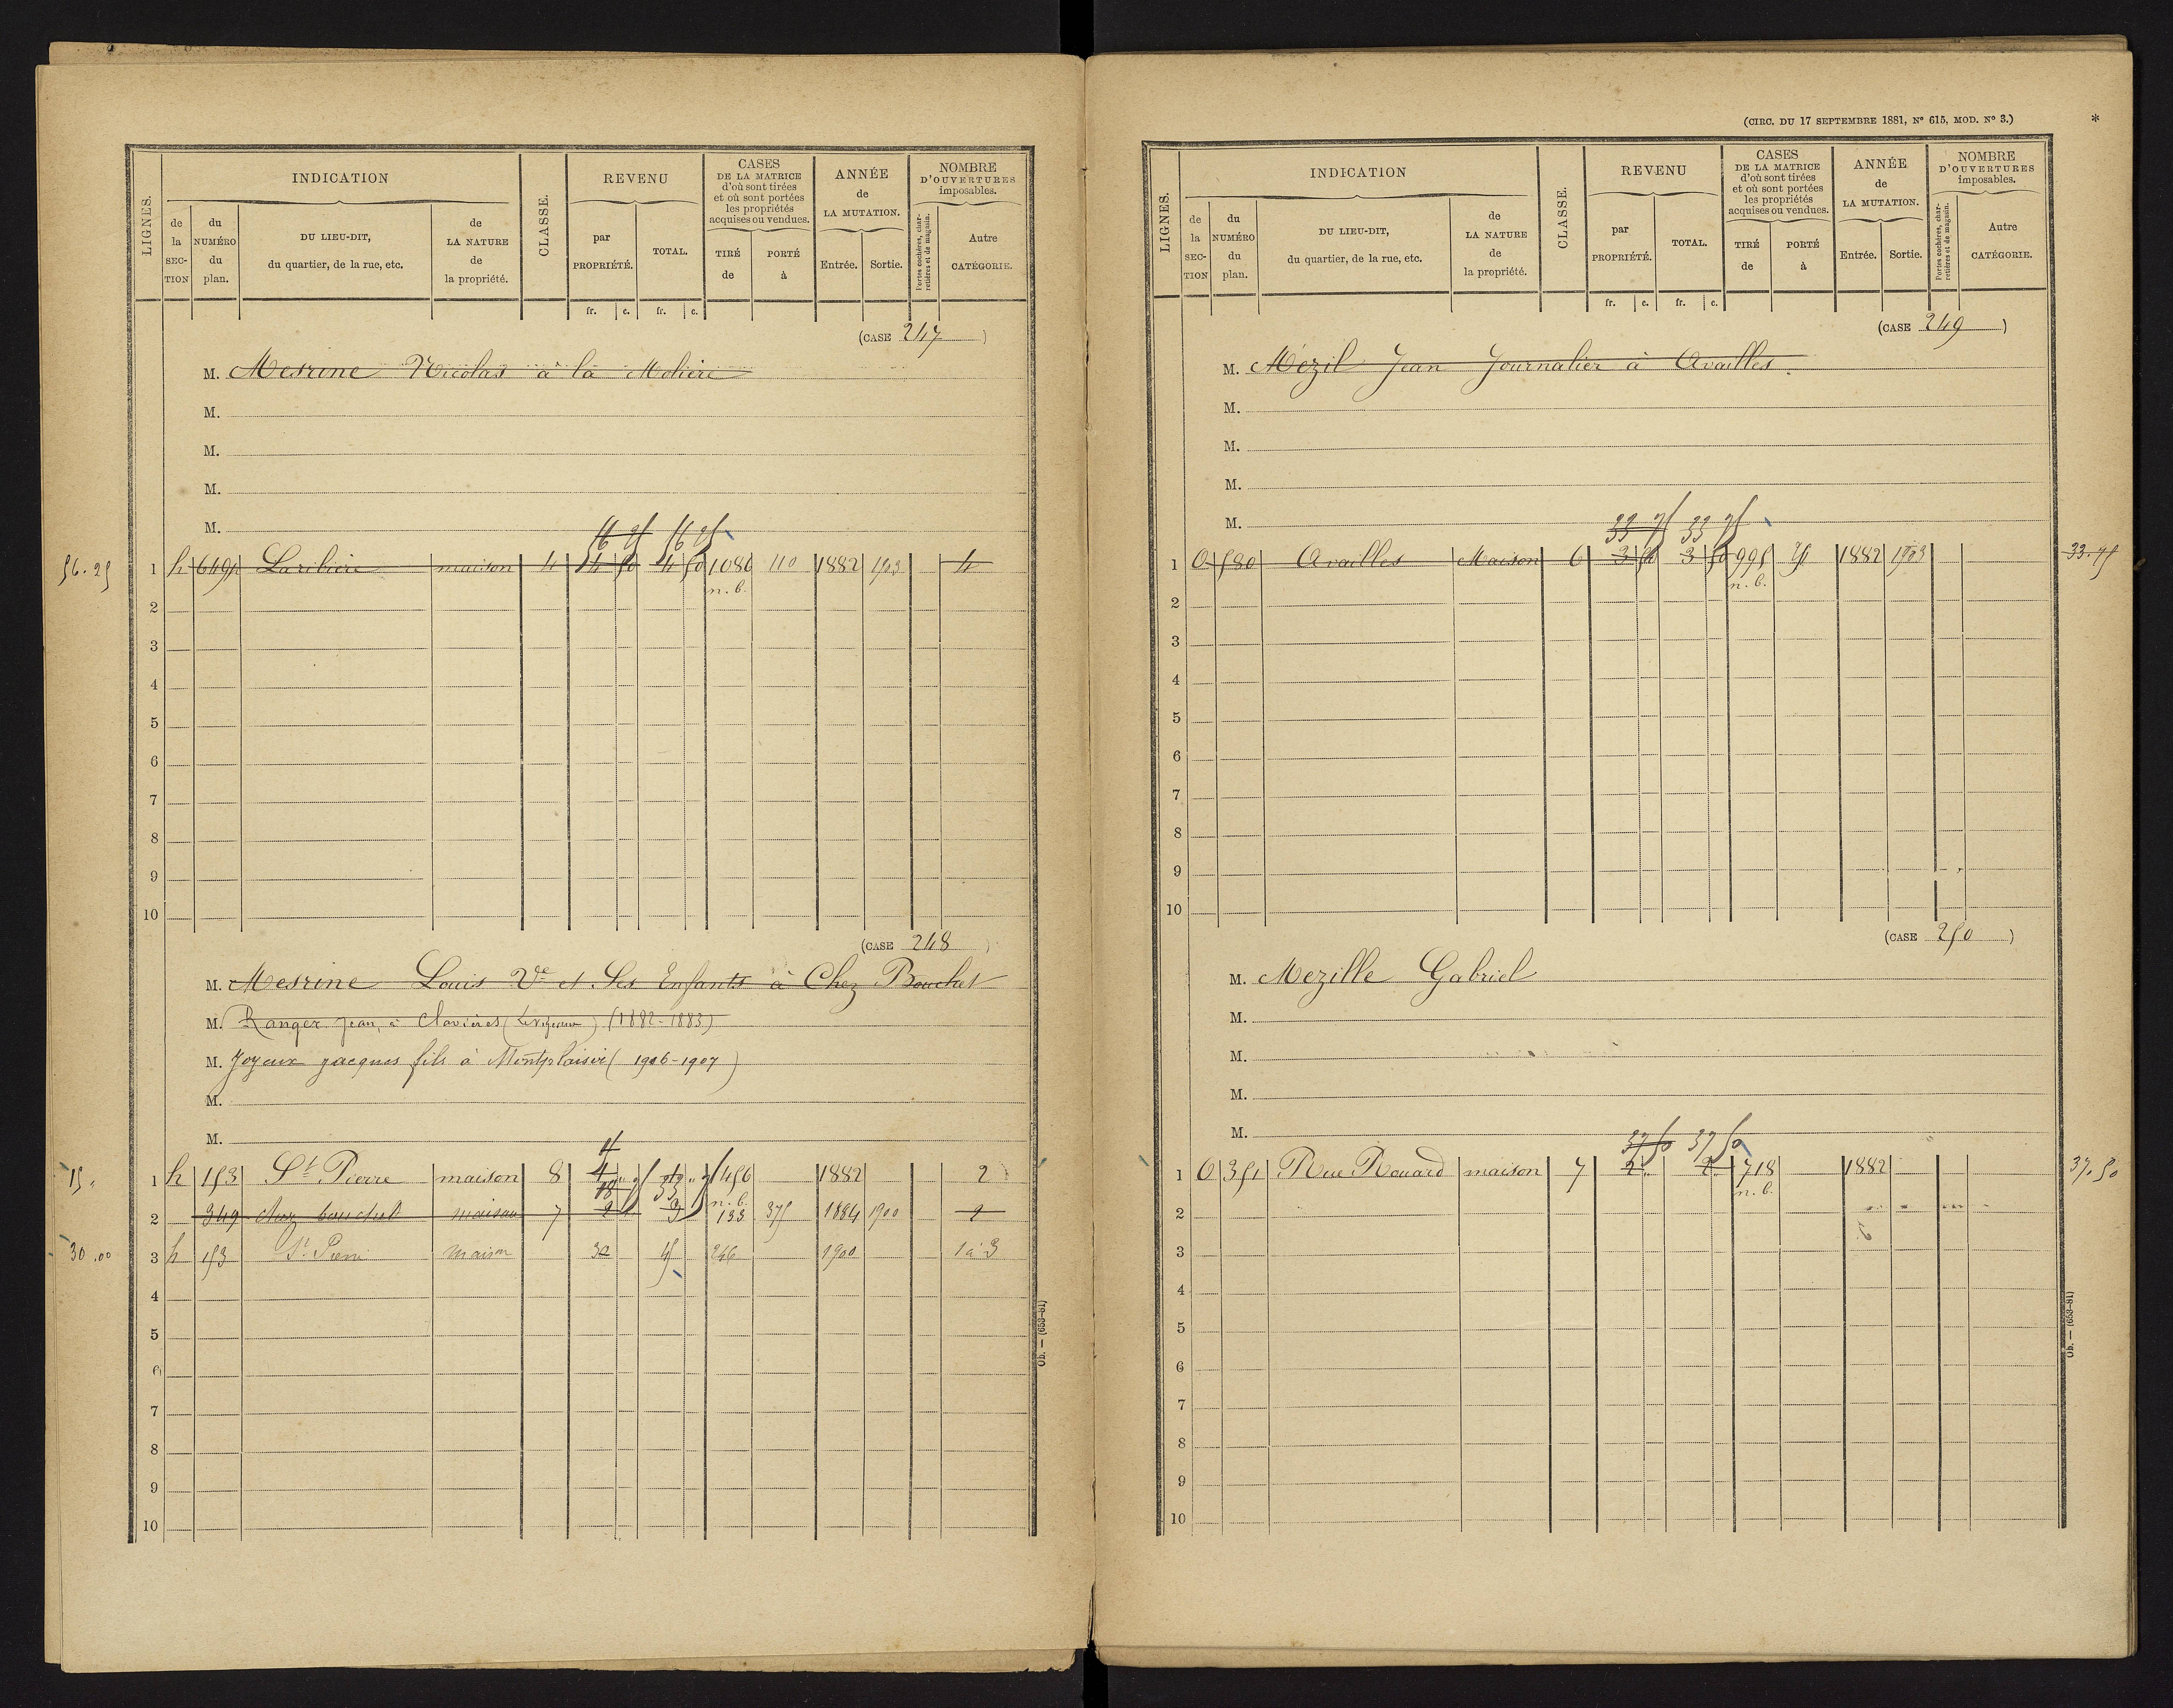 LIGNES.
INDICATION
de la SECTION
du NUMÉRO du plan.
DU LIEU-DIT, du quartier, de la rue, etc.
de LA NATURE de la propriété.
CLASSE.
REVENU
par PROPRIÉTÉ.
TOTAL.
fr. c. fr. c.
CASES DE LA MATRICE d'où sont tirées et où sont portées les propriétés acquises ou vendues.
TIRÉ de
PORTÉ à
ANNÉE de LA MUTATION.
Entrée. Sortie.
NOMBRE D'OUVERTURES imposables.
Portes cochères, charretières et de magasin.
Autre CATÉGORIE.
(CASE 247)
M. Mesrine Nicolas à la Molière
M.
M.
M.
M.
56.25 1 h 649p Laribière maison 4 1086 110 1882 1903 4
n. b.
2
3
4
5
6
7
8
9
10
(CASE 248)
M. Mesrine Louis Ve et Ses Enfants à Chez Bouchet
M. Ranger Jean, à Clavières (1882-1883)
M. Joyeux Jacques fils à Montplaisir (1906-1907)
M.
M.
15 1 h 153 St Pierre maison 8 456 1882 2
n. b.
2 349 chez bouchet maison 7 133 375 1884 1900 2
30.00 3 h 153 St Pierre maison 30 45 246 1900 1 à 3
4
5
6
7
8
9
10
Ob. — (653-81)
(CIRC. DU 17 SEPTEMBRE 1881, N° 615, MOD. N° 3.)
*
LIGNES.
INDICATION
de la SECTION
du NUMÉRO du plan.
DU LIEU-DIT, du quartier, de la rue, etc.
de LA NATURE de la propriété.
CLASSE.
REVENU
par PROPRIÉTÉ.
TOTAL.
fr. c. fr. c.
CASES DE LA MATRICE d'où sont tirées et où sont portées les propriétés acquises ou vendues.
TIRÉ de
PORTÉ à
ANNÉE de LA MUTATION.
Entrée. Sortie.
NOMBRE D'OUVERTURES imposables.
Portes cochères, charretières et de magasin.
Autre CATÉGORIE.
(CASE 249)
M. Mézil Jean Journalier à Availles.
M.
M.
M.
M.
33 75 33 75
1 O 580 Availles Maison 6 3 50 3 50 995 75 1882 1903 33.75
n. b.
2
3
4
5
6
7
8
9
10
(CASE 250)
M. Mezille Gabriel
M.
M.
M.
M.
37 50 37 50
1 O 351 Rue Rouard maison 7 2 2 718 1882 37.50
n. b.
2
3
4
5
6
7
8
9
10
Ob. — (653-81)